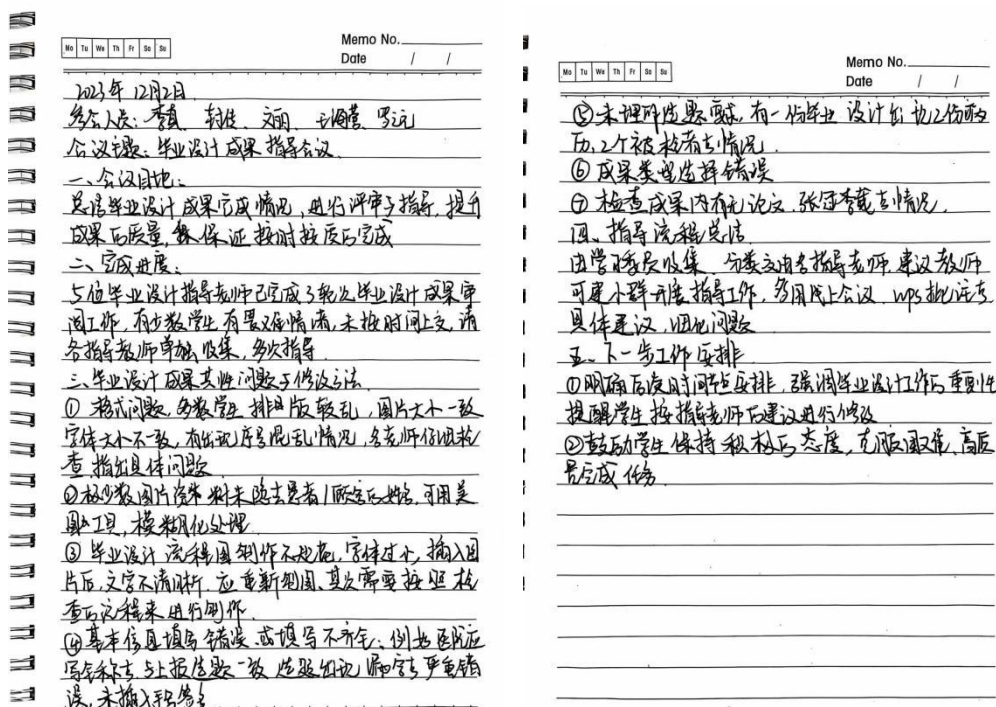 Memo No.
Mo Tu We Th Fr Sa Su
Date / /
2023年12月2日
参会人员：李真 封佳 文丽 王海莺 罗元
会议主题：毕业设计成果指导会议
一、会议目地：
总结毕业设计成果完成情况，进行评审与指导，提升
成果的质量，保证按时按质的完成
二、完成进度：
5位毕业设计指导老师已完成3轮次毕业设计成果审
阅工作，有少数学生有畏难情绪，未按时间上交，请
各指导教师单独收集，多次指导
三、毕业设计成果共性问题与修改方法
① 格式问题，多数学生排版较乱，图片大小一致
字体大小不一致，有出现序号混乱情况，各老师仔细检
查，指出具体问题
②极少数图片资料未隐去患者/医院的姓名，可用美
图工具，模糊化处理
③ 毕业设计流程图制作不规范，字体过小，插入图
片后，文字不清晰，应重新制图，其次需要按照检
查的流程来进行制作
④基本信息填写错误或填写不齐全：例如医院应
写全称，与上报选题一致，选题出现漏字等严重错
误，未插入签名
Memo No.
Mo Tu We Th Fr Sa Su
Date / /
⑤未理解选题要求，有一份毕业设计出现2份病
历，2个被检者等情况
⑥ 成果类型选择错误
⑦ 检查成果内有无论文，张冠李戴等情况
四、指导流程总结
由学习委员收集，分类交由各指导老师，建议教师
可建小群开展指导工作，多用线上会议，wps批注等
具体建议，细化问题
五、下一步工作安排
①明确后发时间点安排，强调毕业设计工作的重要性
提醒学生按指导老师的建议进行修改
②鼓励学生保持积极的态度，克服困难，高质
量完成任务